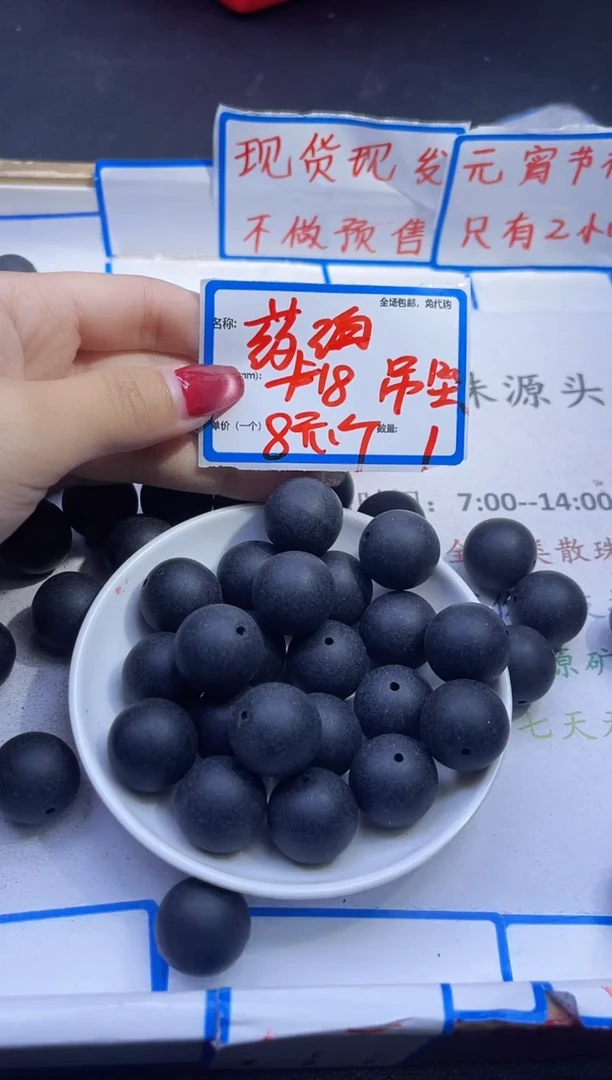 现货现发
不做预售
元宵节
只有2小
全场包邮，免代购
名称：药珀
mm)：卡18 吊坠
单价（一个）8元个 数量：1
珠源头
时间：7:00--14:00
全
类散珠
原矿
七天